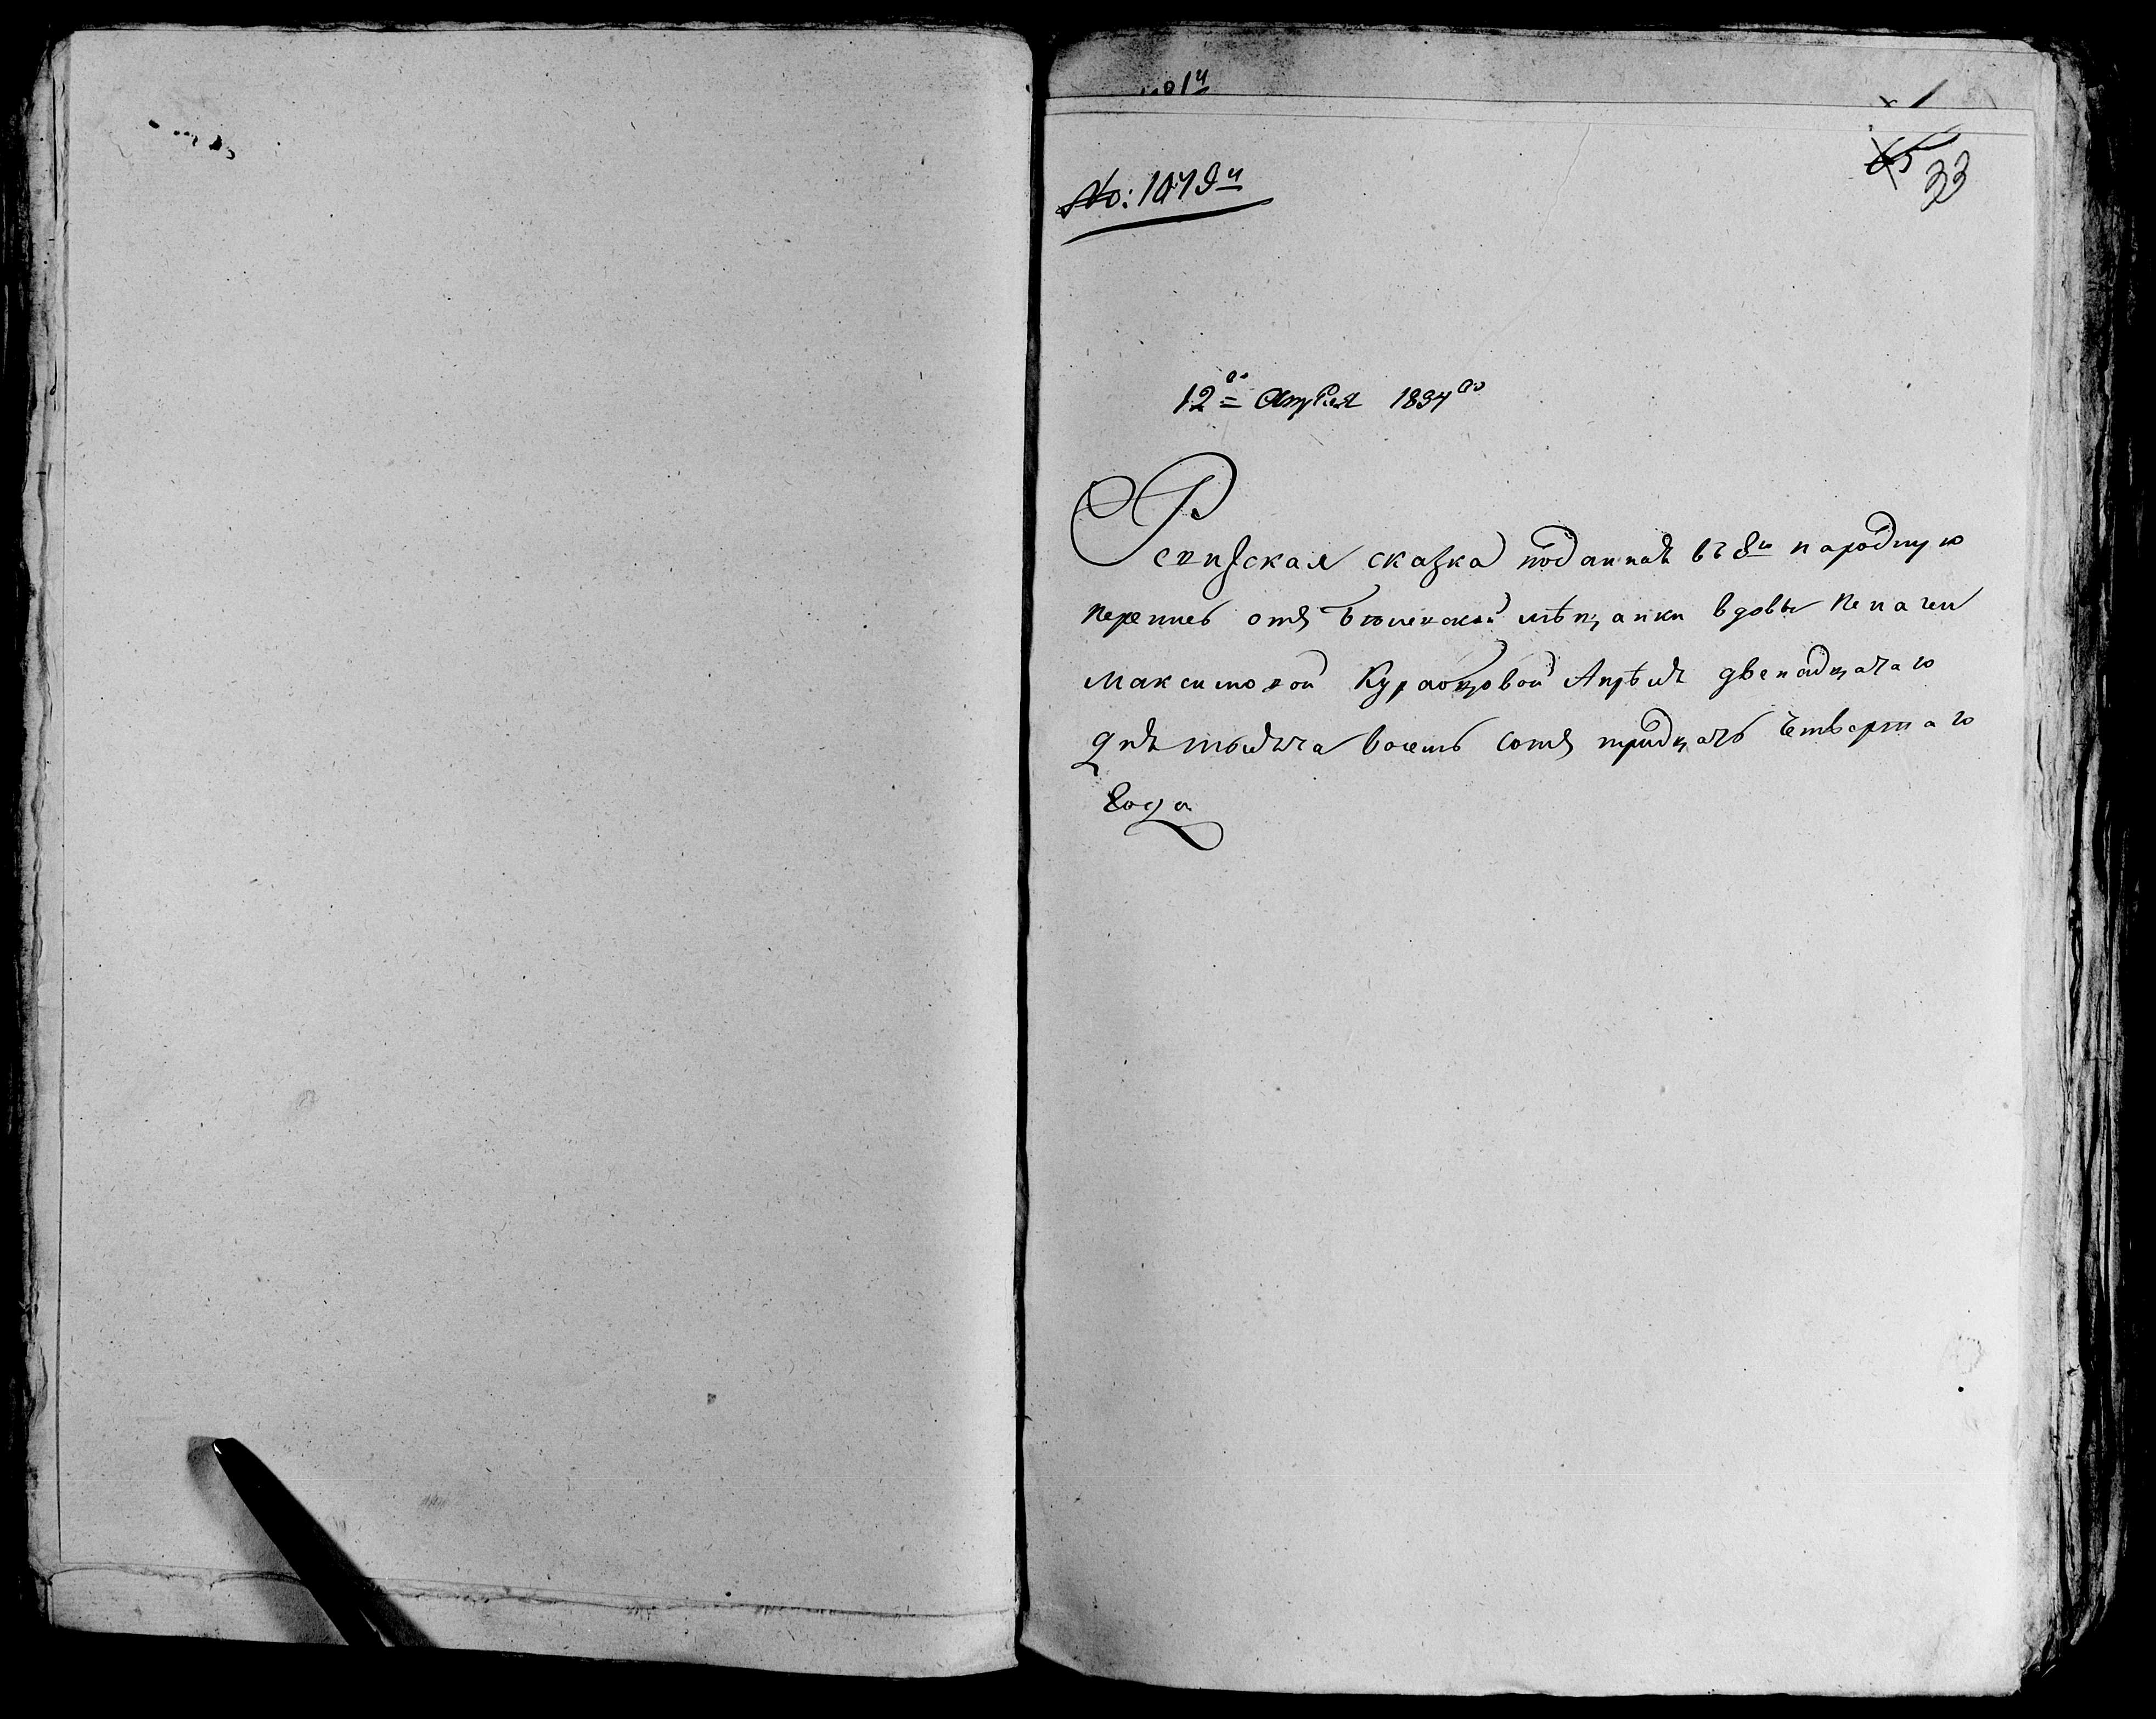 33
12го Апреля 1834го
Ревизская сказка поданная въ 8ю народную
перепись отъ мѣщанки вдовы
Максимовой Апрѣля двенадцатаго
дня тысяча восемь сотъ тридцать четвертаго
года